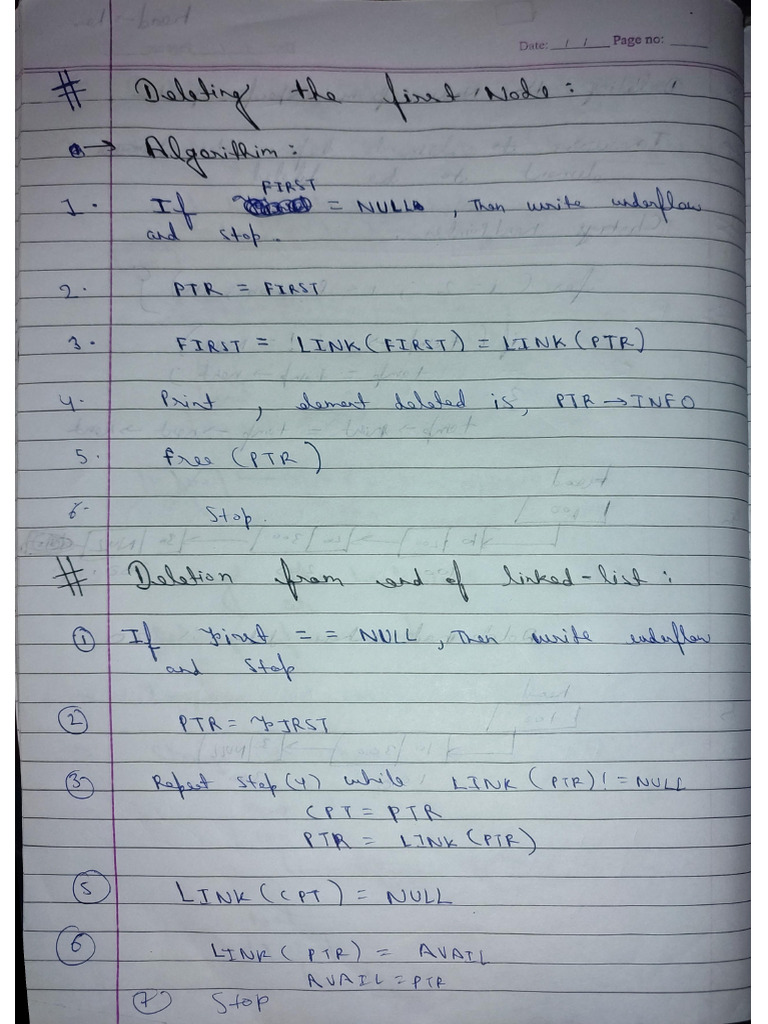 Date: / / Page no:
# Deleting the first Node:
→ Algorithim:
FIRST
1. If = NULL, Then write underflow
and stop.
2. PTR = FIRST
3. FIRST = LINK(FIRST) = LINK(PTR)
4. Print, element deleted is, PTR → INFO
5. free (PTR)
6. Stop.
# Deletion from end of linked-list:
① If First == NULL, Then write underflow
and Stop
② PTR = FIRST
③ Repeat step(4) while LINK (PTR) != NULL
CPT = PTR
PTR = LINK (PTR)
⑤ LINK (CPT) = NULL
⑥ LINK (PTR) = AVAIL
AVAIL = PTR
⑦ Stop